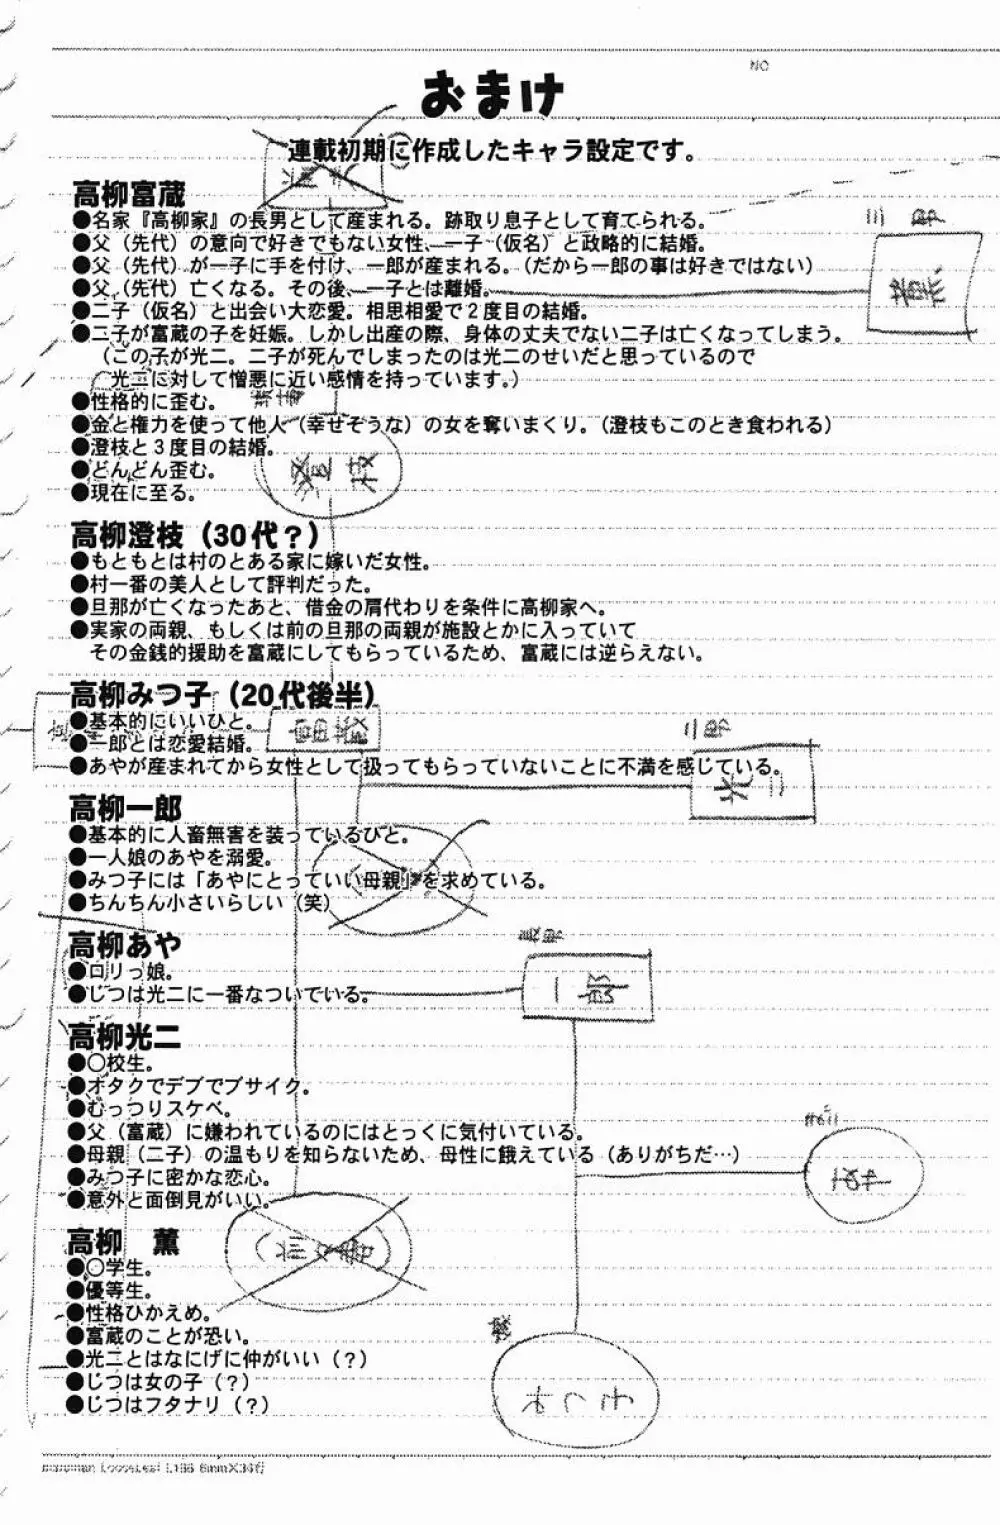 NO
おまけ
連載初期に作成したキャラ設定です。
高柳富蔵
●名家『高柳家』の長男として産まれる。跡取り息子として育てられる。
●父（先代）の意向で好きでもない女性、一子（仮名）と政略的に結婚。
●父（先代）が一子に手を付け、一郎が産まれる。（だから一郎の事は好きではない）
●父（先代）亡くなる。その後、一子とは離婚。
●二子（仮名）と出会い大恋愛。相思相愛で２度目の結婚。
●二子が富蔵の子を妊娠。しかし出産の際、身体の丈夫でない二子は亡くなってしまう。
（この子が光二。二子が死んでしまったのは光二のせいだと思っているので
光二に対して憎悪に近い感情を持っています。）
●性格的に歪む。
●金と権力を使って他人（幸せそうな）の女を奪いまくり。（澄枝もこのとき食われる）
●澄枝と３度目の結婚。
●どんどん歪む。
●現在に至る。
澄枝
高柳澄枝（30代？）
●もともとは村のとある家に嫁いだ女性。
●村一番の美人として評判だった。
●旦那が亡くなったあと、借金の肩代わりを条件に高柳家へ。
●実家の両親、もしくは前の旦那の両親が施設とかに入っていて
その金銭的援助を富蔵にしてもらっているため、富蔵には逆らえない。
高柳みつ子（20代後半）
●基本的にいいひと。
富蔵
●一郎とは恋愛結婚。
二郎
●あやが産まれてから女性として扱ってもらっていないことに不満を感じている。
光二
高柳一郎
●基本的に人畜無害を装っているひと。
●一人娘のあやを溺愛。
●みつ子には「あやにとっていい母親」を求めている。
●ちんちん小さいらしい（笑）
高柳あや
●ロリっ娘。
●じつは光二に一番なついている。
長男
一郎
高柳光二
●〇校生。
●オタクでデブでブサイク。
●むっつりスケベ。
●父（富蔵）に嫌われているのにはとっくに気付いている。
●母親（二子）の温もりを知らないため、母性に餓えている（ありがちだ…）
●みつ子に密かな恋心。
●意外と面倒見がいい。
高柳　薫
●〇学生。
●優等生。
●性格ひかえめ。
●富蔵のことが恐い。
●光二とはなにげに仲がいい（？）
●じつは女の子（？）
●じつはフタナリ（？）